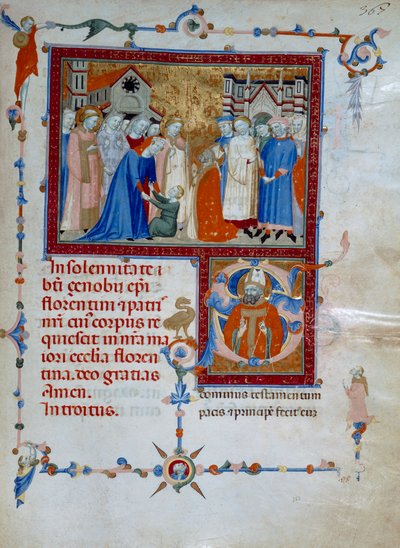 In solennitate
bti çenobii epi
florentini ⁊ patris
nri cui' corpus re
quiescit in nra ma
iori ecclia floren
tina. deo gratias
Amen.
Introitus.
dominus testamentum
pacis ⁊ principem fecit eum